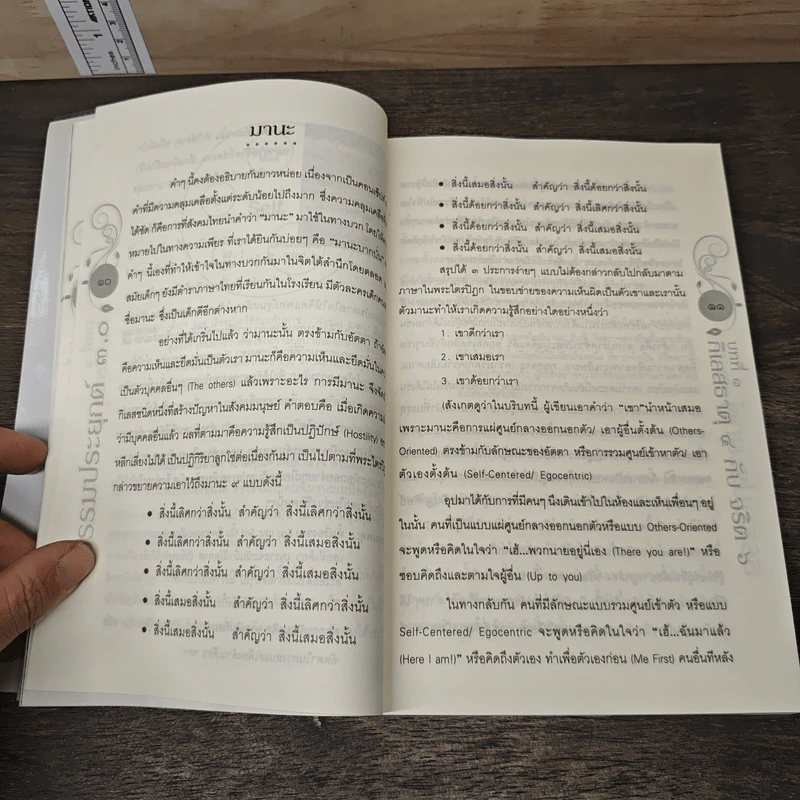 มานะ
คำๆ นี้คงต้องอธิบายกันยาวหน่อย เนื่องจากเป็นคอนเซ็ป
คำที่มีความคลุมเคลือตั้งแต่ระดับน้อยไปถึงมาก ซึ่งความคลุมเคลือ
ได้ชัด ก็คือการที่สังคมไทยนำคำว่า "มานะ" มาใช้ในทางบวก โดย
หมายไปในทางความเพียร ที่เราได้ยินกันบ่อยๆ คือ "มานะบากบั่น"
คำๆ นี้เองที่ทำให้เข้าใจในทางบวกกันมาในจิตใต้สำนึกโดยตลอด
สมัยเด็กๆ ยังมีตำราภาษาไทยที่เรียนกันในโรงเรียน มีตัวละครเด็ก
ชื่อมานะ ซึ่งเป็นเด็กดีอีกต่างหาก
อย่างที่ได้เกริ่นไปแล้ว ว่ามานะนั้น ตรงข้ามกับอัตตา
คือความเห็นและยึดมั่นเป็นตัวเรา มานะก็คือความเห็นและยึดมั่นใน
เป็นตัวบุคคลอื่นๆ (The others) แล้วเพราะอะไร การมีมานะ จึง
กิเลสชนิดหนึ่งที่สร้างปัญหาในสังคมมนุษย์ คำตอบคือ เมื่อเกิดความ
ว่ามีบุคคลอื่นแล้ว ผลที่ตามมาคือความรู้สึกเป็นปฏิปักษ์ (Hostility)
หลีกเลี่ยงไม่ได้ เป็นปฏิกิริยาลูกโซ่ต่อเนื่องกันมา เป็นไปตามที่พระไตร
กล่าวขยายความเอาไว้ถึงมานะ ๙ แบบดังนี้
• สิ่งนี้เลิศกว่าสิ่งนั้น สำคัญว่า สิ่งนี้เลิศกว่าสิ่งนั้น
• สิ่งนี้เลิศกว่าสิ่งนั้น สำคัญว่า สิ่งนี้เสมอสิ่งนั้น
• สิ่งนี้เลิศกว่าสิ่งนั้น สำคัญว่า สิ่งนี้ด้อยกว่าสิ่งนั้น
• สิ่งนี้เสมอสิ่งนั้น สำคัญว่า สิ่งนี้เลิศกว่าสิ่งนั้น
• สิ่งนี้เสมอสิ่งนั้น สำคัญว่า สิ่งนี้เสมอสิ่งนั้น
๑๐
ธรรมประยุกต์ ๓.๐
• สิ่งนี้เสมอสิ่งนั้น สำคัญว่า สิ่งนี้ด้อยกว่าสิ่งนั้น
• สิ่งนี้ด้อยกว่าสิ่งนั้น สำคัญว่า สิ่งนี้เลิศกว่าสิ่งนั้น
• สิ่งนี้ด้อยกว่าสิ่งนั้น สำคัญว่า สิ่งนี้เสมอสิ่งนั้น
• สิ่งนี้ด้อยกว่าสิ่งนั้น สำคัญว่า สิ่งนี้เสมอสิ่งนั้น
สรุปได้ ๓ ประการง่ายๆ แบบไม่ต้องกล่าวกลับไปกลับมาตาม
ภาษาในพระไตรปิฎก ในขอบข่ายของความเห็นผิดเป็นตัวเขาและเรานั้น
ตัวมานะทำให้เราเกิดความรู้สึกอย่างใดอย่างหนึ่งว่า
1. เขาดีกว่าเรา
2. เขาเสมอเรา
3. เขาด้อยกว่าเรา
(สังเกตดูว่าในบริบทนี้ ผู้เขียนเอาคำว่า "เขา"นำหน้าเสมอ
เพราะมานะคือการแผ่ศูนย์กลางออกนอกตัว/ เอาผู้อื่นตั้งต้น (Others-
Oriented) ตรงข้ามกับลักษณะของอัตตา หรือการรวมศูนย์เข้าหาตัว/ เอา
ตัวเองตั้งต้น (Self-Centered/ Egocentric)
อุปมาได้กับการที่มีคนๆ นึงเดินเข้าไปในห้องและเห็นเพื่อนๆ อยู่
ในนั้น คนที่เป็นแบบแผ่ศูนย์กลางออกนอกตัวหรือแบบ Others-Oriented
จะพูดหรือคิดในใจว่า "เฮ้...พวกนายอยู่นี่เอง (There you are!)" หรือ
ชอบคิดถึงและตามใจผู้อื่น (Up to you)
ในทางกลับกัน คนที่มีลักษณะแบบรวมศูนย์เข้าตัว หรือแบบ
Self-Centered/ Egocentric จะพูดหรือคิดในใจว่า "เฮ้...ฉันมาแล้ว
(Here I am!)" หรือคิดถึงตัวเอง ทำเพื่อตัวเองก่อน (Me First) คนอื่นทีหลัง
๑๑
บทที่ ๑
กิเลสธาตุ ๔ กับ จริต ๖